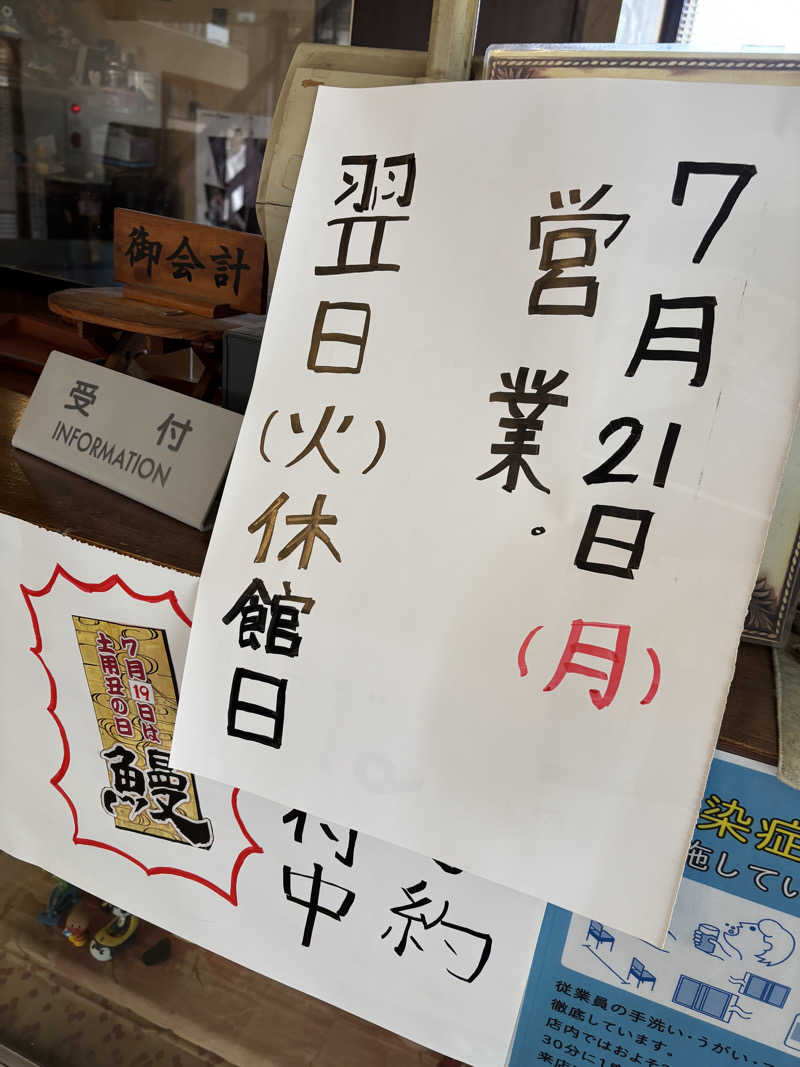 7月21日(月)
営業。
翌日(火)休館日
御会計
受付
INFORMATION
7月19日は
土用丑の日
鰻
約
付中
染症
施してい
従業員の手洗い・うがい・
徹底しています。
店内ではおよそ
30分に1
来店